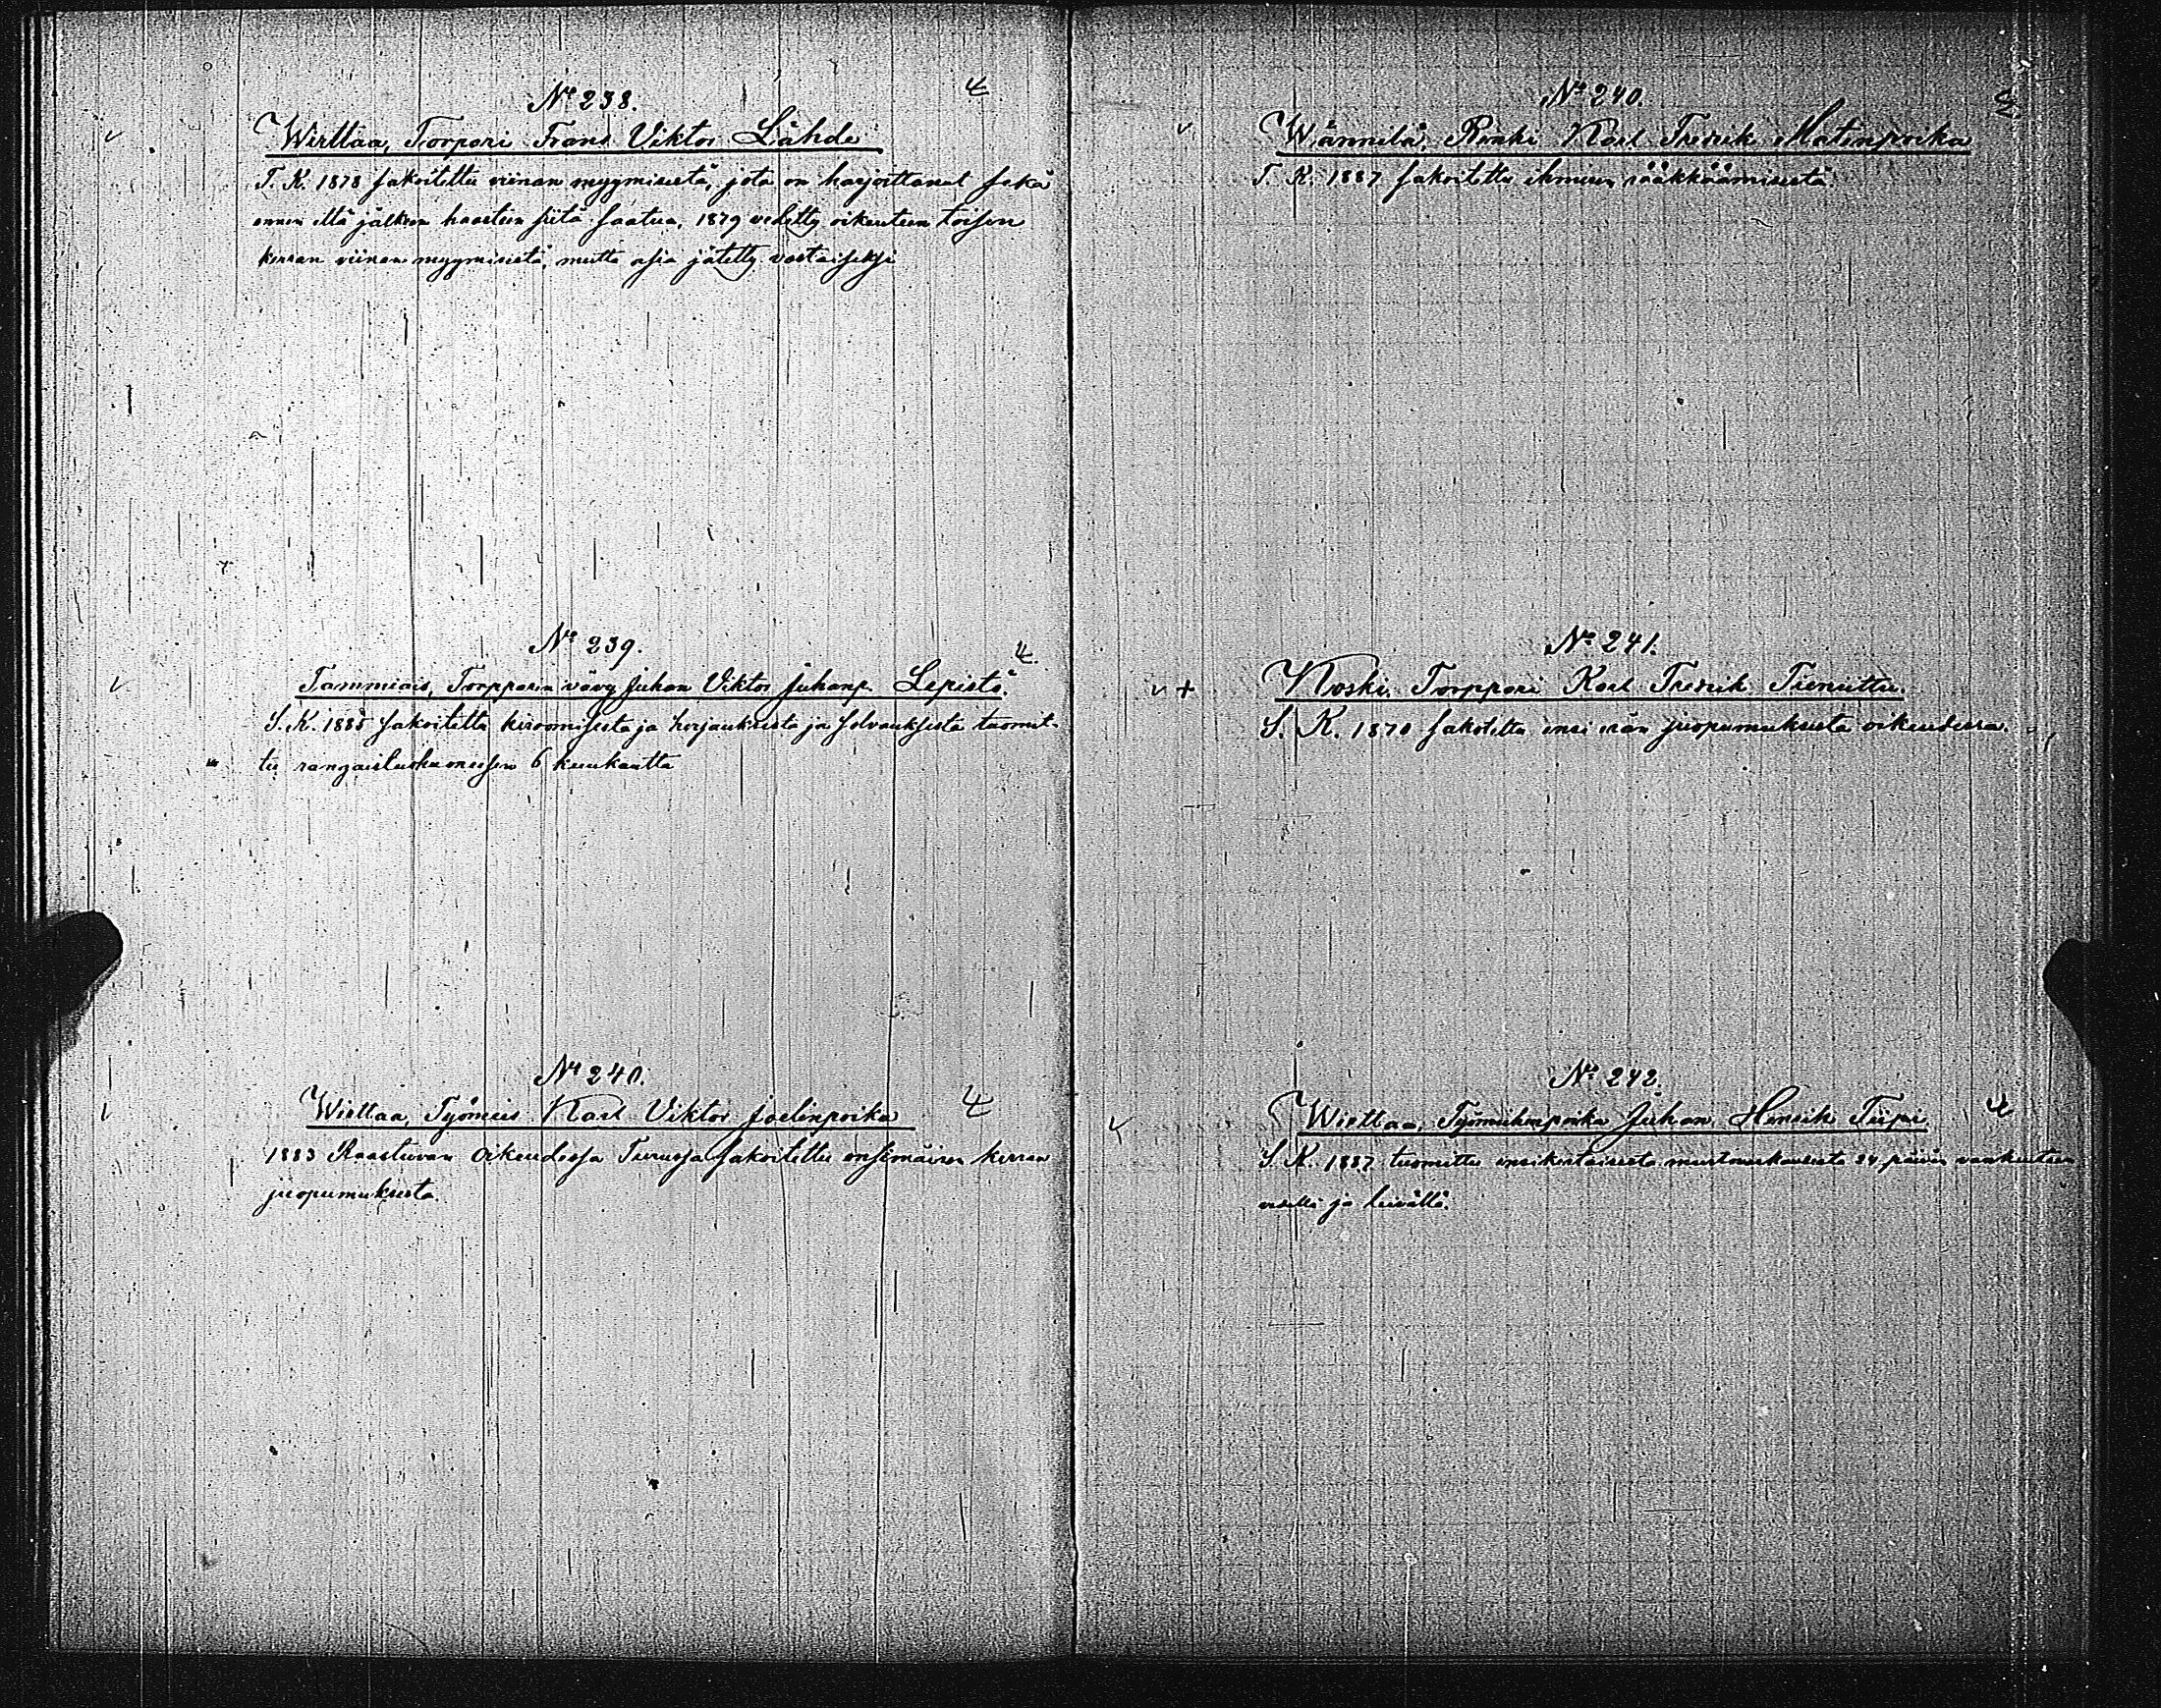 Nº 238.
Wirttaa, Torpari Frans Viktor Lähde
T. K. 1878 sakoitettu viinan myymisestä, jota on harjoittanut sekä
ennen että jälkeen haasteen sitä saatua, 1879 vedetty oikeuteen toisen
kerran viinan myymisestä, mutta asia jätetty vastaiseksi
Nº 239.
Tammiais, Torpparin vävy Juhan Viktor Juhanp. Lepistö.
S. K. 1885 sakoitettu kiroomisesta ja herjauksesta ja solvauksesta tuomit-
tu rangaistushuoneesen 6 kuukautta
Nº 240.
Wirttaa, Työmies Karl Viktor Joelinpoika
1883 Raastuvan oikeudessa Turussa sakoitettu ensimäisen kerran
juopumuksesta.
Nº 240.
Wännilä, Renki Karl Fredrik Matinpoika
T. K. 1887 sakoitettu ihmisen rääkkäämisestä.
Nº 241.
Koski. Torppari Karl Fredrik Tieniittu.
S. K. 1870 sakotettu ensi erän juopumuksesta oikeudessa.
Nº 242.
Wirttaa, Työmiehenpoika Juhan Henrik Tiipi
S. K. 1887 tuomittu ensikertaisesta murtovarkaudesta 24 päivän vankeuteen
vedellä ja leivällä.